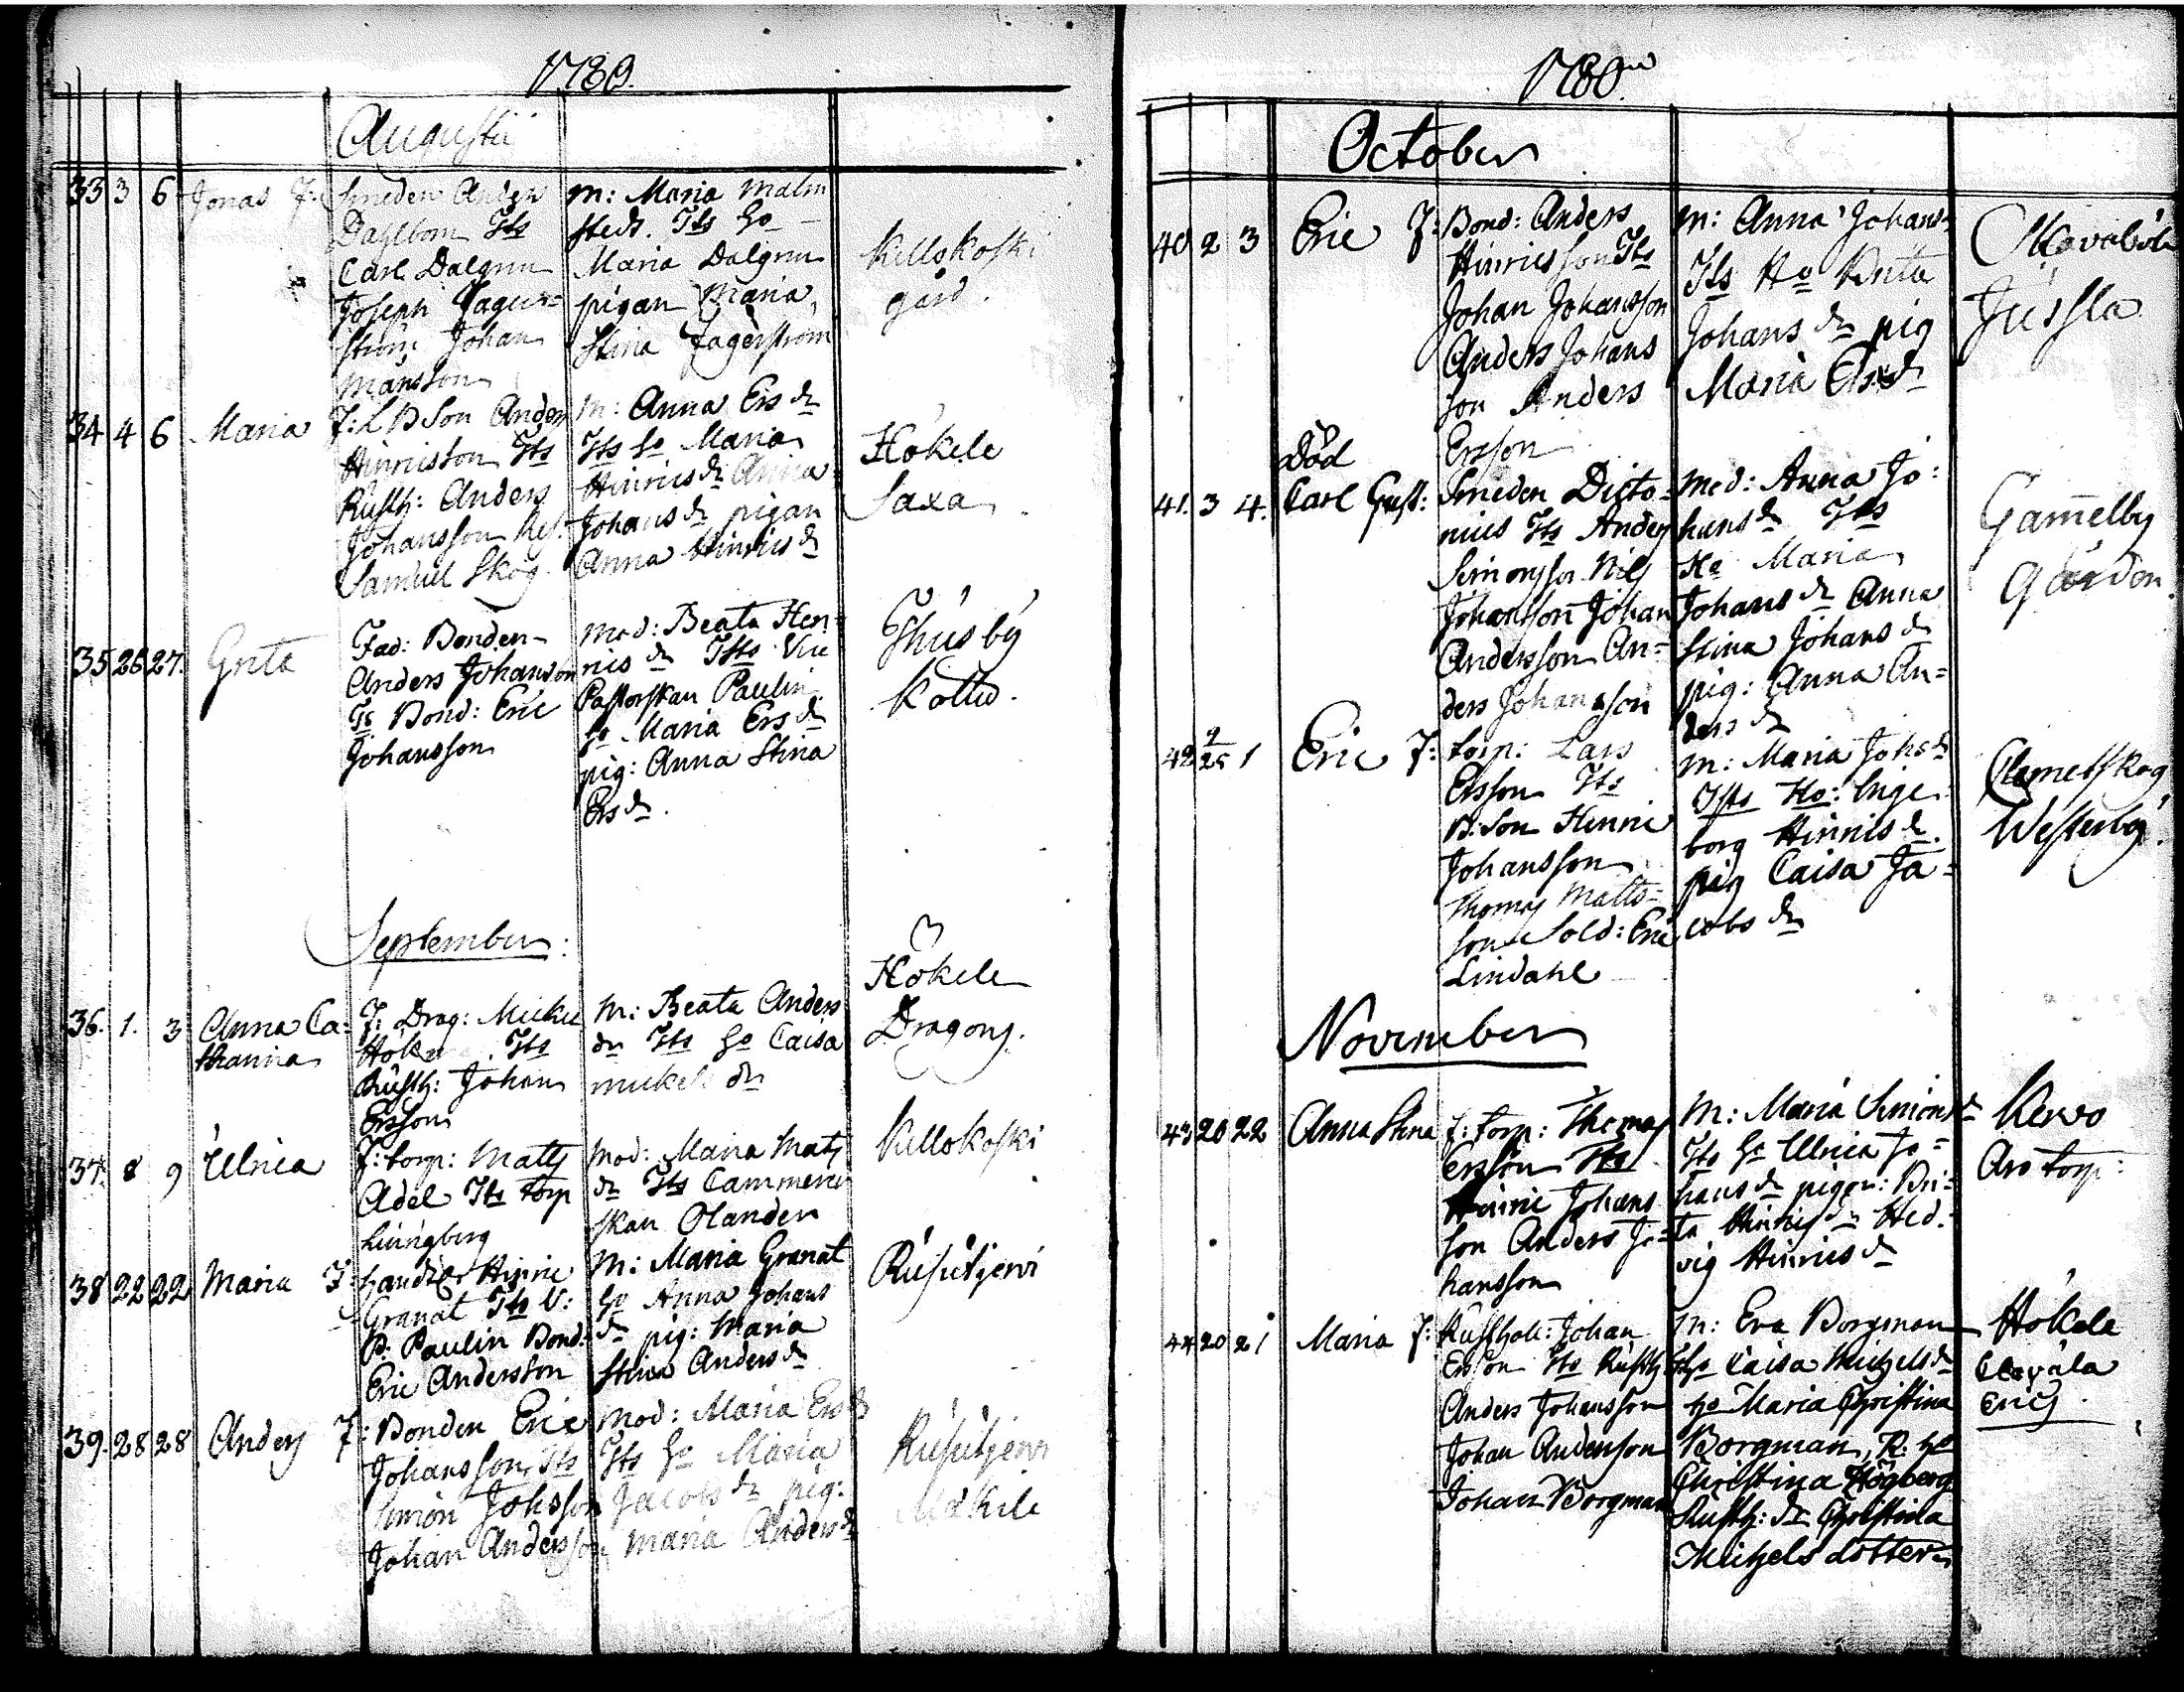 1780.
Augusti
33 3 6 Jonas F: Smeden Anders
Dahlbom Tts
Carl Dalgren
Joseph Jager=
ström Johan
Månsson
M: Maria Malm
stedt. Tts Ho
Maria Dalgren
pigan Maria
Stina Jagerström
Kellokoski
gård.
34 4 6 Maria F: L B Son Anders
Hinricsson Tts
Rusth: Anders
Johansson
Samuel Skog
M: Anna Ers dr
Tts ho Maria
Hinrics dr Anna
Johans dr pigan
Anna Hinrics dr
Hökele
Saxa
35 26 27. Greta
Fad: Bonden
Anders Johansson
Ts Bond: Eric
Johansson
Mod: Beata Hen
rics dr Tts Vice
Pastorskan Paulin
ho Maria Ers dr
pig: Anna Stina
Ers dr.
Thusby
Kotted.
September:
36. 1. 3 Anna Ca:
tharina
F: Drag: Mickel
Tts
Rusth: Johan
Ersson
M: Beata Anders
dr Tts ho Caisa
Mickels dr
Hökele
Dragong.
37. 8 9 Ulrica
F: torp: Matts
Adel Tts torp
Liungberg
Mod: Maria Mats
dr Tts Cammerer
skan Olander
Kellokoski
38 22 22 Maria F:
Granat Tts V:
P. Paulin Bond:
Eric Andersson
M: Maria Granat
ho Anna Johans
dr pig: Maria
Stina Anders dr
Rusutjervi
39. 28 28 Anders F: Bonden Eric
Johansson, Tts
Simon Johsson
Johan Andersson
Mod: Maria Ers dr
Tts ho Maria
Jacobs dr pig:
Maria Anders dr
Rusutjervi
Mäkile
1780
October
40 2 3 Eric F: Bond: Anders
Hinricsson Tts
Johan Johansson
Anders Johans
son Anders
Ersson
M: Anna Johans
Tts Ho Brita
Johans dr pig
Maria Ers dr
Jussla
Död
41. 3 4. Carl Gust: Smeden Dicto=
nius Tts Anders
Simonsson Nils
Johansson Johan
Andersson An=
ders Johansson
Mod: Anna Jo:
hans dr Tts
Ho Maria
Johans dr Anna
Stina Johans dr
pig: Anna An=
ders dr
Gam̄elby
gården.
42 9/25 1 Eric F: torp: Lars
Ersson Tts
B: Son Henric
Johansson
Thomas Matts=
son Sold: Eric
Lindahl
M: Maria Johs dr
Tts Ho: Inge
borg Hinrics dr.
pig Caisa Ja=
cobs dr
Clemetskog
Westerby.
November
43 20 22 Anna Stina F: torp: Thomas
Ersson Tts
Henric Johans
son Anders Jo=
hansson
M: Maria Simons dr
Tts ho Ulrica Jo=
hans dr pigor: Bri=
ta Hinrics dr Hed:
vig Hinrics dr
Kervo
Aro torp:
44 20 21 Maria F: Rusthåll: Johan
Ersson Tts Rusth
Anders Johansson
Johan Andersson
Johan Borgman
M: Eva Borgman
ho Caisa Michels dr
ho Maria Christina
Borgman, R: ho
Christina Högberg
Rusth: dr Christina
Michels dotter
Hökele
Clavala
Erics.